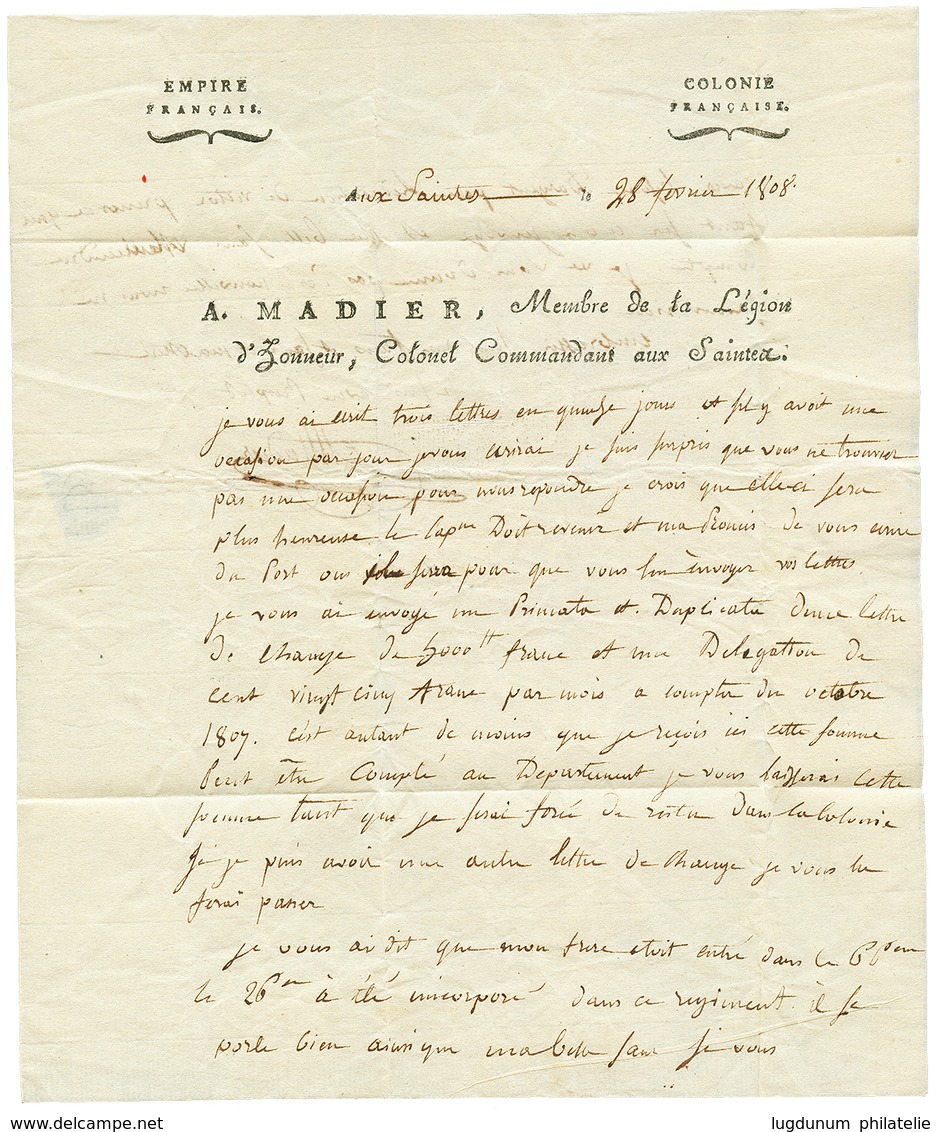 EMPIRE
FRANÇAIS.
COLONIE
FRANÇAISE.
Aux Saintes le 28 fevrier 1808.
A. MADIER, Membre de la Légion
d'Honneur, Colonel Commandant aux Saintes.
je vous ai ecrit trois lettres en quinze jours et s'il y avoit une
occasion par jour je vous ecrirai je suis surpris que vous ne trouvier
pas une occasion pour nous repondre je crois que celle ci sera
plus heureuse le Cap.ne Doit revenir et ma Promis de vous ecrire
du Port ous il sera pour que vous lui envoyer vos lettres.
je vous ai envoyé un Primata et Duplicata d'une lettre
De change de 5000tt franc et une Delegation de
cent vingt cinq franc par mois a compter du octobre
1807. c'est autant de moins que je reçois ici cette somme
Peut être Compté au Departement je vous laisserai cette
somme tant que je serai forcé de rester dans la Colonie
Si je puis avoir une autre lettre de change je vous la
ferai passer
je vous ai dit que mon frere etoit entré dans le 66eme
le 26me à été incorporé dans ce regiment. il se
porte bien ainsi que ma belle sœur je vous
lugdunum philatelie